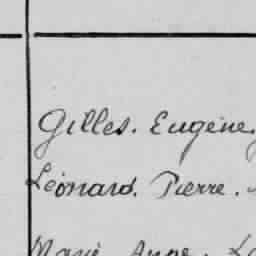 Gilles. Eugène.
Léonard. Pierre.
Marie Anne. L